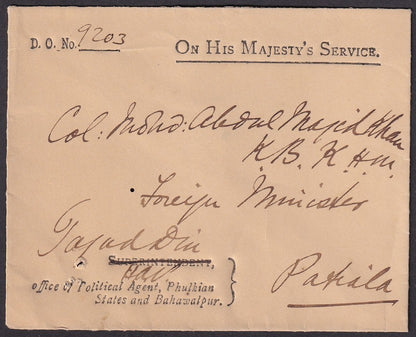 D. O. No. 9203
ON HIS MAJESTY'S SERVICE.
Col: Mohd: Abdul Majid Khan
K. B. K.
Foreign Minister
SUPERINTENDENT,
Office of Political Agent, Phulkian
States and Bahawalpur.
Patiala